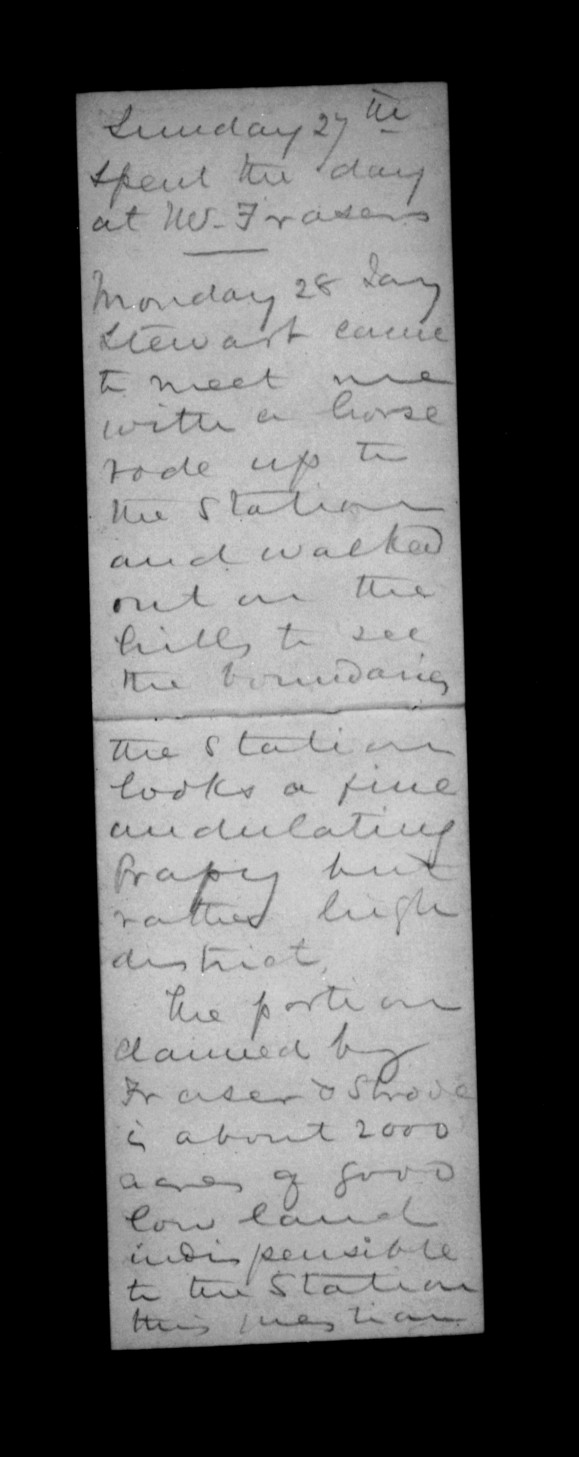 Sunday 27th
spent the day
at Mr. Frasers
Monday 28 Jany
Stewart came
to meet me
with a horse
rode up to
the Station
and walked
out on the
hills to see
the boundaries
the Station
looks a fine
undulating
grassy but
rather high
district,
the portion
claimed by
Fraser & Shrode
is about 2000
acres of good
low land
indispensible
to the Station
this question